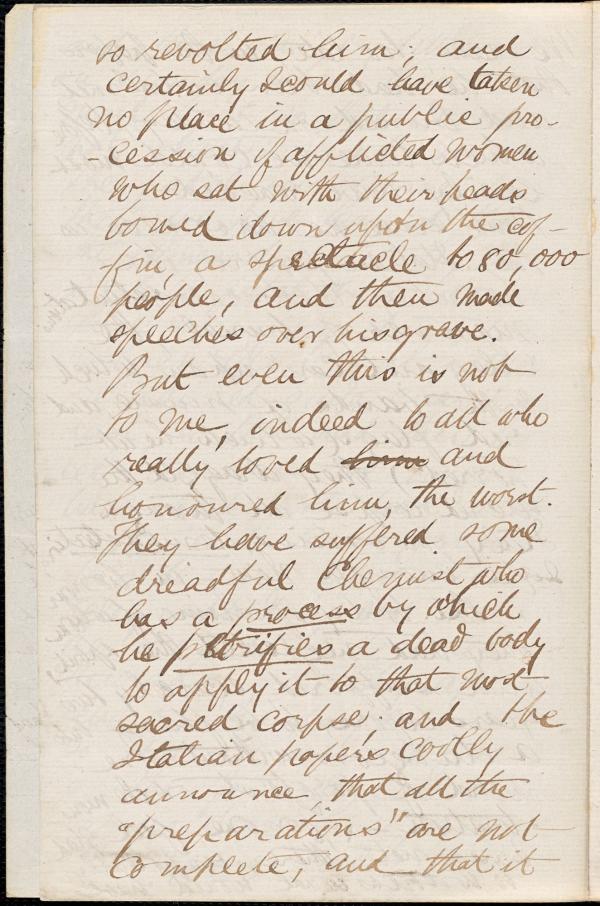 so revolted him; and
certainly I could have taken
no place in a public pro-
-cession of afflicted women
who sat with their heads
bowed down upon the cof-
fin, a spectacle to 80,000
people, and then made
speeches over his grave.
But even this is not
to me, indeed to all who
really loved him and
honoured him, the worst.
They have suffered some
dreadful Chemist who
has a process by which
he petrifies a dead body
to apply it to that most
sacred corpse: and the
Italian papers coolly
announce, that all the
"preparations" are not
complete, and that it